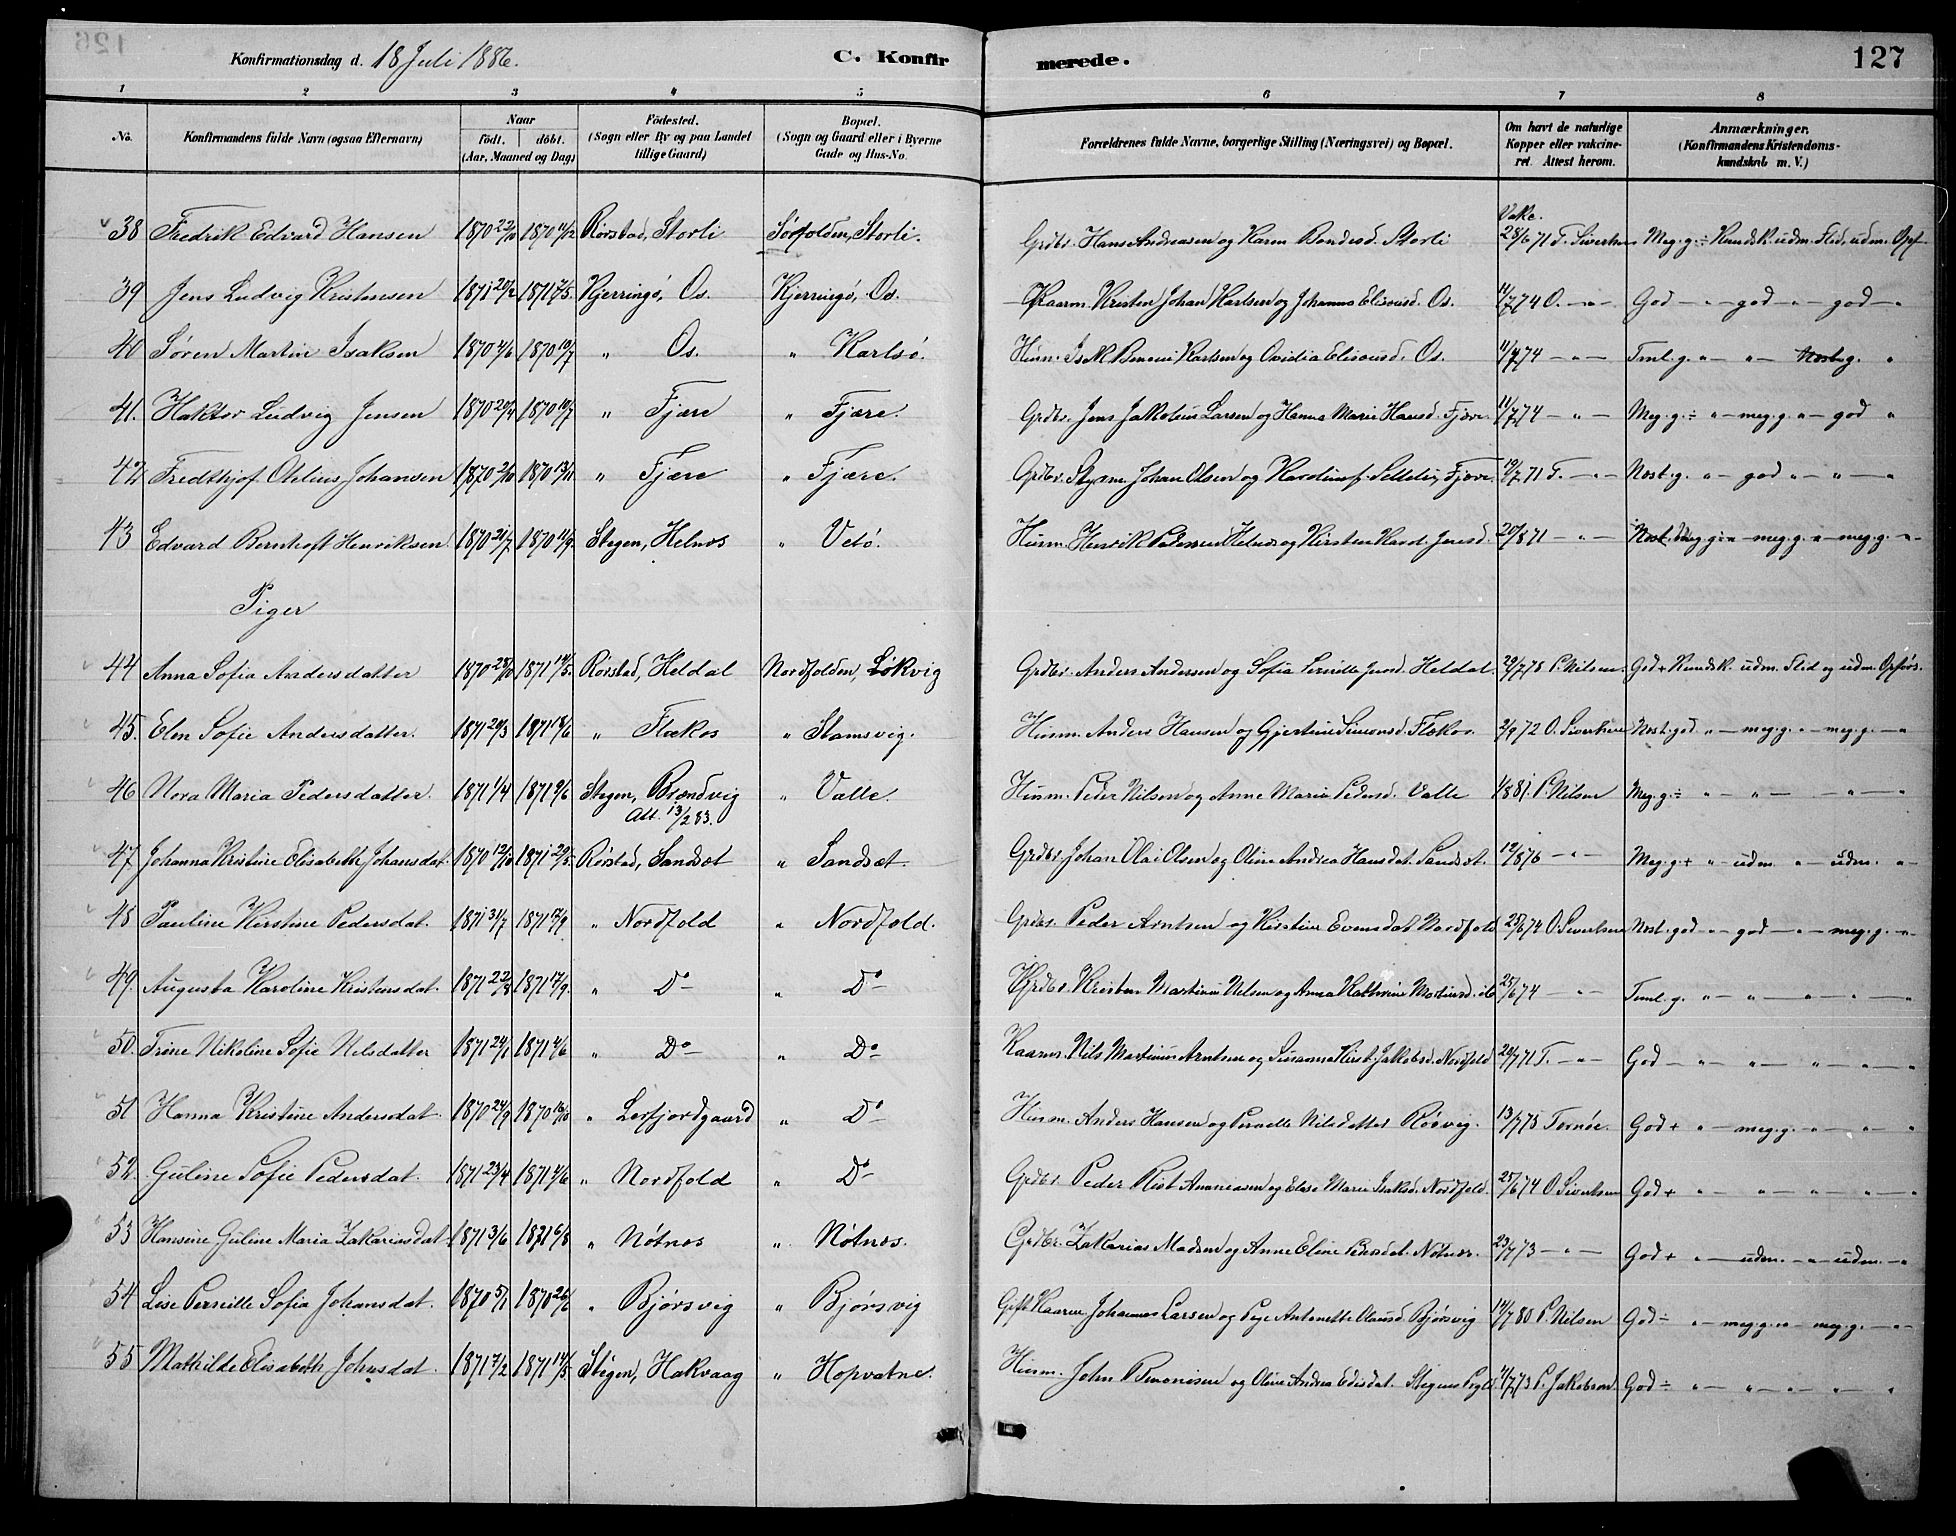 Konfirmationsdag d. 18 Juli 1886. C. Konfirmerede. 127
1 2 3 4 5 6 7 8
No. Konfirmandens fulde Navn (ogsaa Efternavn) Naar født. døbt. (Aar, Maaned og Dag) Fødested. (Sogn eller By og paa Landet tillige Gaard) Bopæl. (Sogn og Gaard eller i Byerne Gade og Hus-No. Forældrenes fulde Navne, borgerlige Stilling (Næringsvei) og Bopæl. Om havt de naturlige Kopper eller vakcineret. Attest herom. Anmærkninger. (Konfirmandens Kristendomskundskab m. V.)
38 Fredrik Edvard Hansen 1870 22/10 1870 4/12 Rørstad, Storli Sørfolden, Storli. Grdbr. Hans Andreasen og Karen Bendesd. Storli Vakc. 28/6 71 T. Sivertsen Meg. g. ÷ Kundsk. udm. Flid, udm. Opf.
39 Jens Ludvig Kristensen 1871 20/2 1871 7/5 Kjerringø, Os. Kjerringø, Os. Kaarm. Kristen Johan Karlsen og Johanna Elisousd. Os. 11/7 74 O. — " — God — " — god — " — god — "
40 Søren Martin Isaksen 1870 4/6 1870 10/7 " Os. " Karlsø. Husm. Isak Benoni Karlsen og Ovidia Elisousd. Os. 11/7 74 — " — Tml. g. " — " — Nost. g. "
41. Haktor Ludvig Jensen 1870 20/4 1870 10/7 " Fjære " Fjære. Grdbr. Jens Jakobius Larsen og Hanna Marie Hansd. Fjære 11/7 74 — " — Meg. g. ÷ " — meg. g. " — god "
42 Fredthjof Otelius Johansen 1870 2/10 1870 13/11 " Fjære " Fjære. Grdbr. Johan Olsen og Fjære. 19/7 71 T. — " — Nost. g. " — god " — " — "
43 Edvard Bernhoft Henriksen 1870 21/7 1870 11/9 Stegen, Helnes " Vetø. Husm. Henrik Pedersen Helnes og Kirsten Jensd. 20/8 71 — " — meg. g. " — meg. g. — " —
Piger
44 Anna Sofia Andersdatter 1870 28/10 1871 14/5 Rørstad, Heldal Nordfolden, Løkvig Grdbr. Anders Andersen og Sofia Pernille Jensd. Heldal 29/7 78 P. Nilsen God + Kundsk. udm. Flid og udm. Opførs.
45. Elen Sofie Andersdatter. 1871 20/3 1871 18/6 " Flækos " Stamsvig. Husm. Anders Hansen og Gjertine Simonsd. Flækos. 2/9 72 O. Sivertsen Nost. god " — meg. g. — " — meg. g. — "
46 Nora Maria Pedersdatter. 1871 1/4 1871 9/6 Stegen, Brændvig Att. 13/2 83. " Valle. Husm. Peder Nilsen og Anne Maria Pedersd. Valle 1/8 81. P. Nilsen Meg. g. ÷ " — " — — " — "
47. Johanna Kristine Elisabeth Johansdat. 1870 12/10 1871 29/5 Rørstad, Sandsæt " Sandsæt. Grdbr. Johan Olai Olsen og Oline Andrea Hansdat. Sandsæt. 19/8 76 — " — Meg. g. + " — udm. " — udm. "
48 Pauline Kirstine Pedersdat. 1871 31/7 1871 17/9 " Nordfold " Nordfold. Grdbr. Peder Arntsen og Kirstine Evensdat. Nordfold 25/6 74 O. Sivertsen Nost. god — " — god — " — meg. g. — "
49. Augusta Karoline Kristensdat. 1871 22/8 1871 17/9. " Do — " Do — Grdbr. Kristen Martinus Nilsen og Anna Kathrine Martinsd. ib. 25/6 74 — " — Tml. g. " — " — " — " — "
50. Trine Nikoline Sofie Nilsdatter 1871 24/1 1871 4/6 " Do — " Do — Kaarm. Nils Martinus Arntsen og Susanna Kirst. Jakobsd. Nordfold 20/7 71 T. — " — God — " — " — " — " — "
51 Hanna Kristine Andersdat. 1870 24/9 1870 16/10 " Lerfjordgaard " Do — Husm. Anders Hansen og Pernelle Nilsdatter Røsvig. 13/7 75 Tornøe. God + " — meg. g. — " — " — "
52. Guline Sofie Pedersdat. 1871 23/4 1871 4/6 " Nordfold " Do — Grdbr. Peder Rist Ananiasen og Elise Marie Isaksd. Nordfold. 25/6 74 O. Sivertsen God + " — " — " — " — "
53 Hansine Guline Maria Zakariasdat. 1871 3/6 1871 6/8 " Nøtnes " Nøtnes. Grdbr. Zakarias Madsen og Anne Eline Pedersdat. Nøtnes. 23/7 73 — " — God + " — udm. — " — udm. — "
54 Lise Pernille Sofia Johansdat. 1870 5/1 1870 26/6 " Bjørsvig " Bjørsvig Gift Kaarm. Johannes Larsen og Antonette Olausd. Bjørsvig 14/7 80 P. Nilsen God ÷ " — meg. g. — " — meg. g. — " —
55 Mathilde Elisabeth Johnsdat. 1871 7/2 1871 14/5 Stegen, Hakvaag " Hopvatne. Husm. John Benonisen og Oline Andrea Edisdat. Stegens Prgld. 4/7 73 P. Jakobsen God ÷ " — " — " — " — "